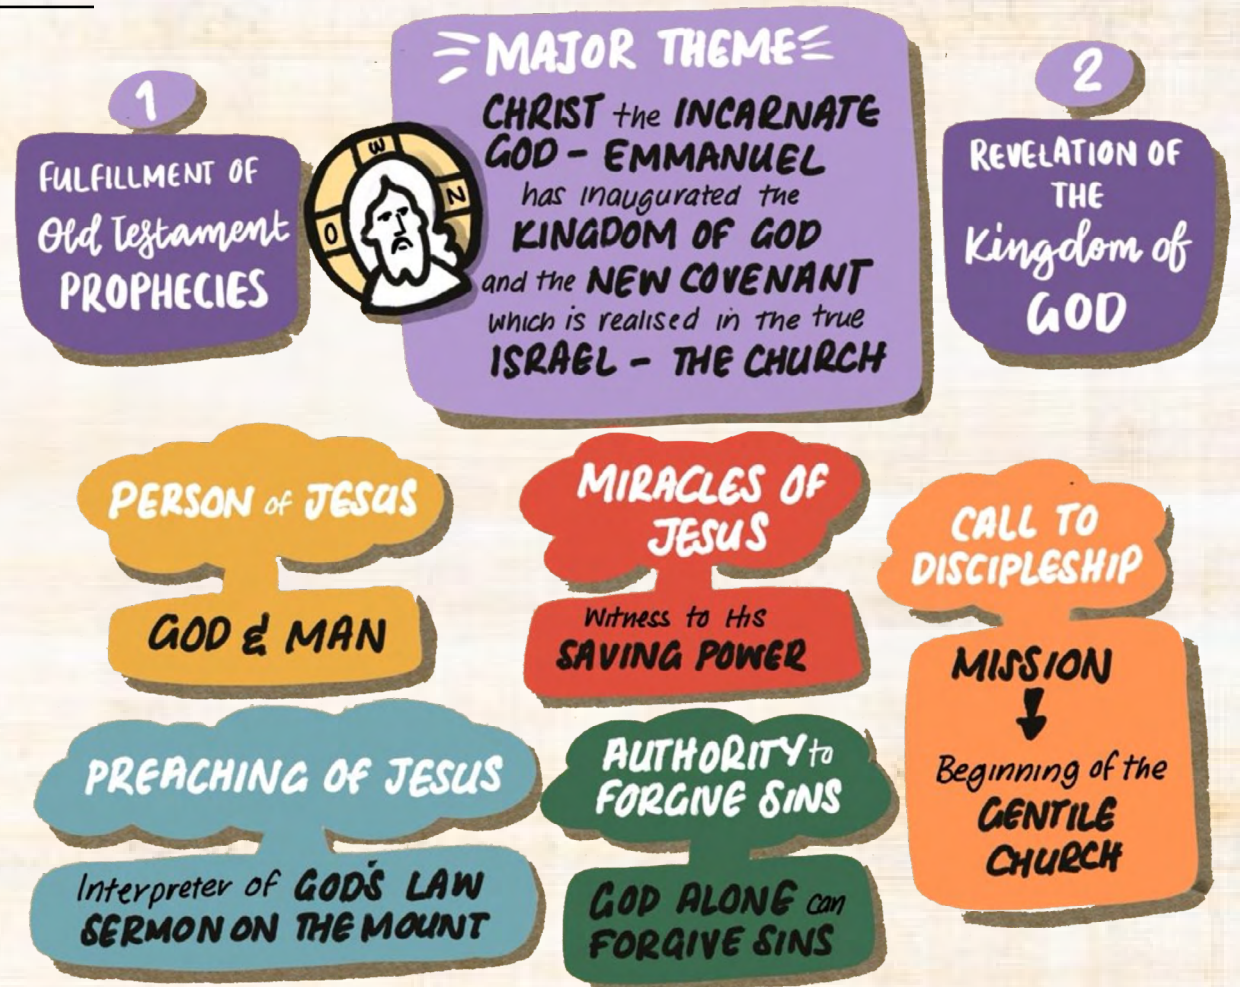 1
FULFILLMENT OF
Old Testament
PROPHECIES
MAJOR THEME
CHRIST the INCARNATE
GOD – EMMANUEL
has inaugurated the
KINGDOM OF GOD
and the NEW COVENANT
which is realised in the true
ISRAEL – THE CHURCH
O W N
2
REVELATION OF
THE
Kingdom of
GOD
PERSON of JESUS
GOD & MAN
MIRACLES OF
JESUS
Witness to His
SAVING POWER
CALL TO
DISCIPLESHIP
MISSION
Beginning of the
GENTILE
CHURCH
PREACHING OF JESUS
Interpreter of GOD'S LAW
SERMON ON THE MOUNT
AUTHORITY to
FORGIVE SINS
GOD ALONE can
FORGIVE SINS